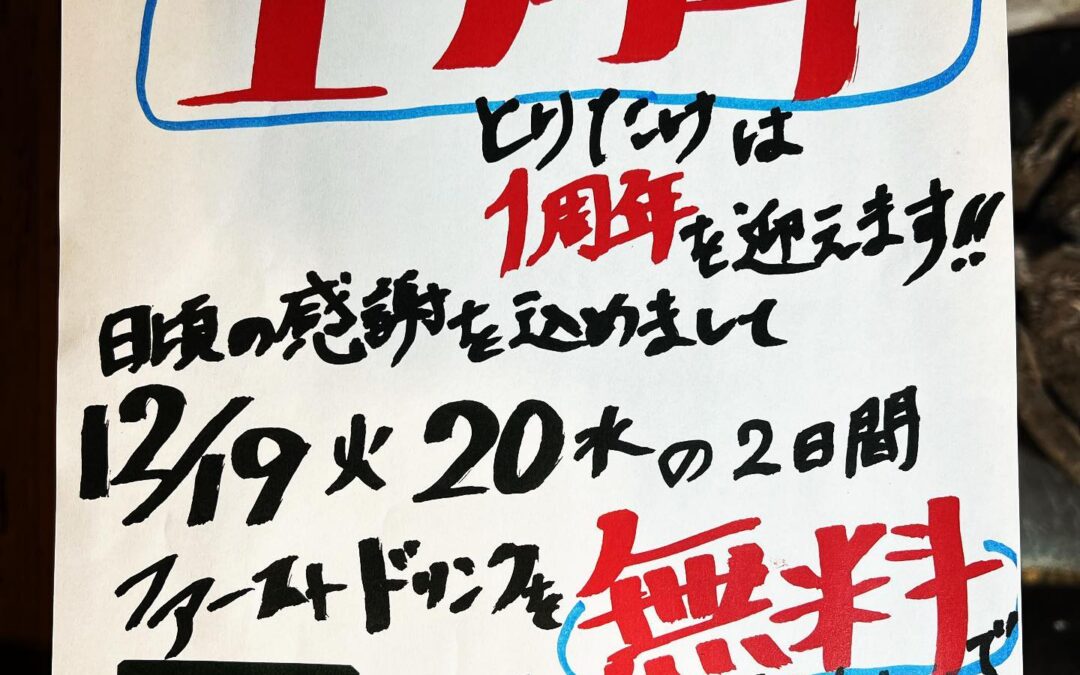 とりたけは
1周年を迎えます!!
日頃の感謝を込めまして
12/19火20水の2日間
ファーストドリンクを無料で